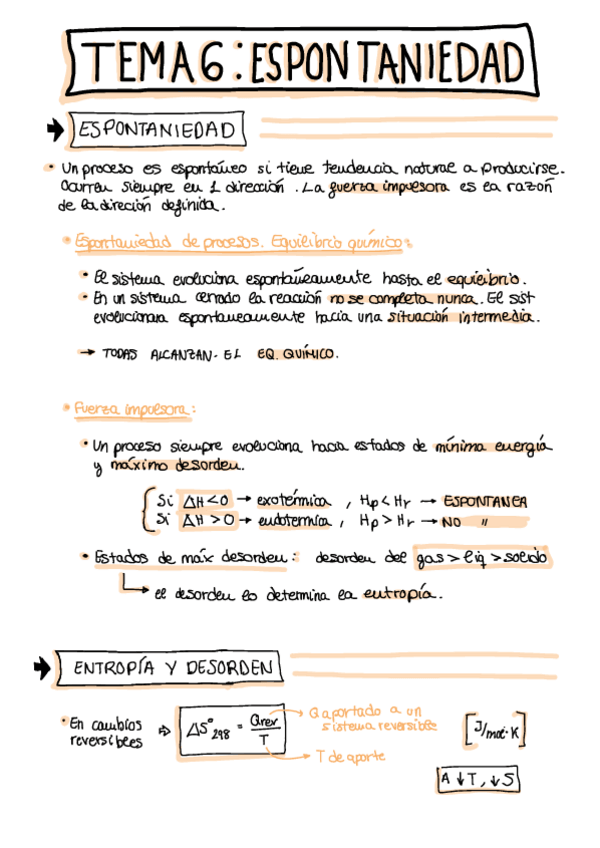 TEMA 6: ESPONTANIEDAD
→ ESPONTANIEDAD
• Un proceso es espontáneo si tiene tendencia natural a producirse.
Ocurren siempre en 1 dirección. La fuerza impulsora es la razón
de la direción definida.
• Espontaniedad de procesos. Equilibrio químico:
• El sistema evoluciona espontáneamente hasta el equilibrio.
• En un sistema cerrado la reacción no se completa nunca. El sist
evolucionara espontaneamente hacia una situación intermedia.
→ TODAS ALCANZAN EL EQ. QUÍMICO.
• Fuerza impulsora:
• Un proceso siempre evoluciona hacia estados de mínima energía
y máximo desorden.
Si ΔH<0 → exotérmica, Hp<Hr → ESPONTANEA
Si ΔH>0 → endotermica, Hp>Hr → NO "
• Estados de máx desorden: desorden del gas > liq > solido
↳ el desorden lo determina la entropía.
→ ENTROPÍA Y DESORDEN
• En cambios
reversibles ⇒ ΔS°298 = Qrev/T
→ Q aportado a un
sistema reversible
→ T de aporte
[J/mol·K]
A ↓T, ↓S